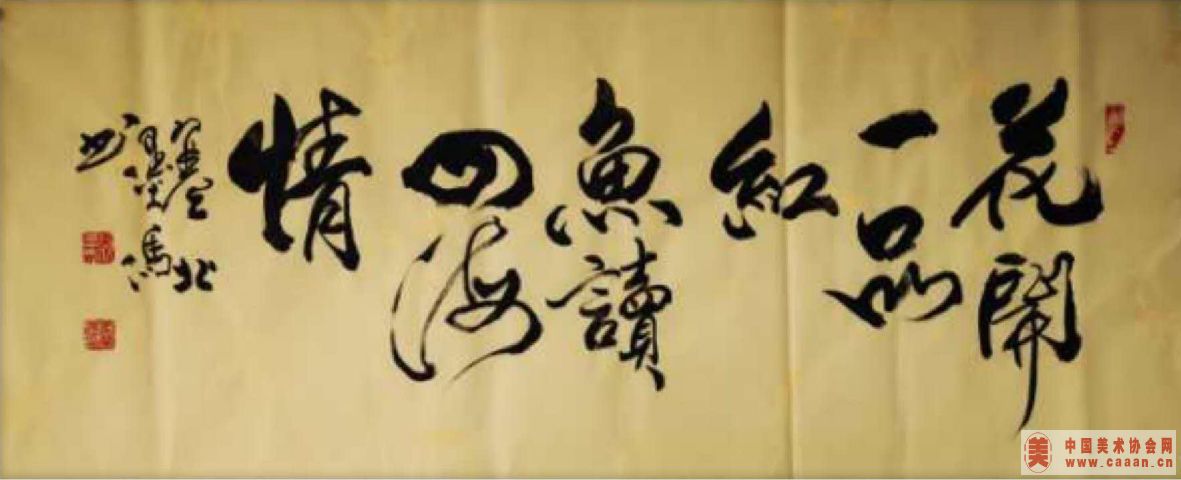 花開
一品
紅
魚讀
四海
情
中国美术协会网
www.caaan.cn